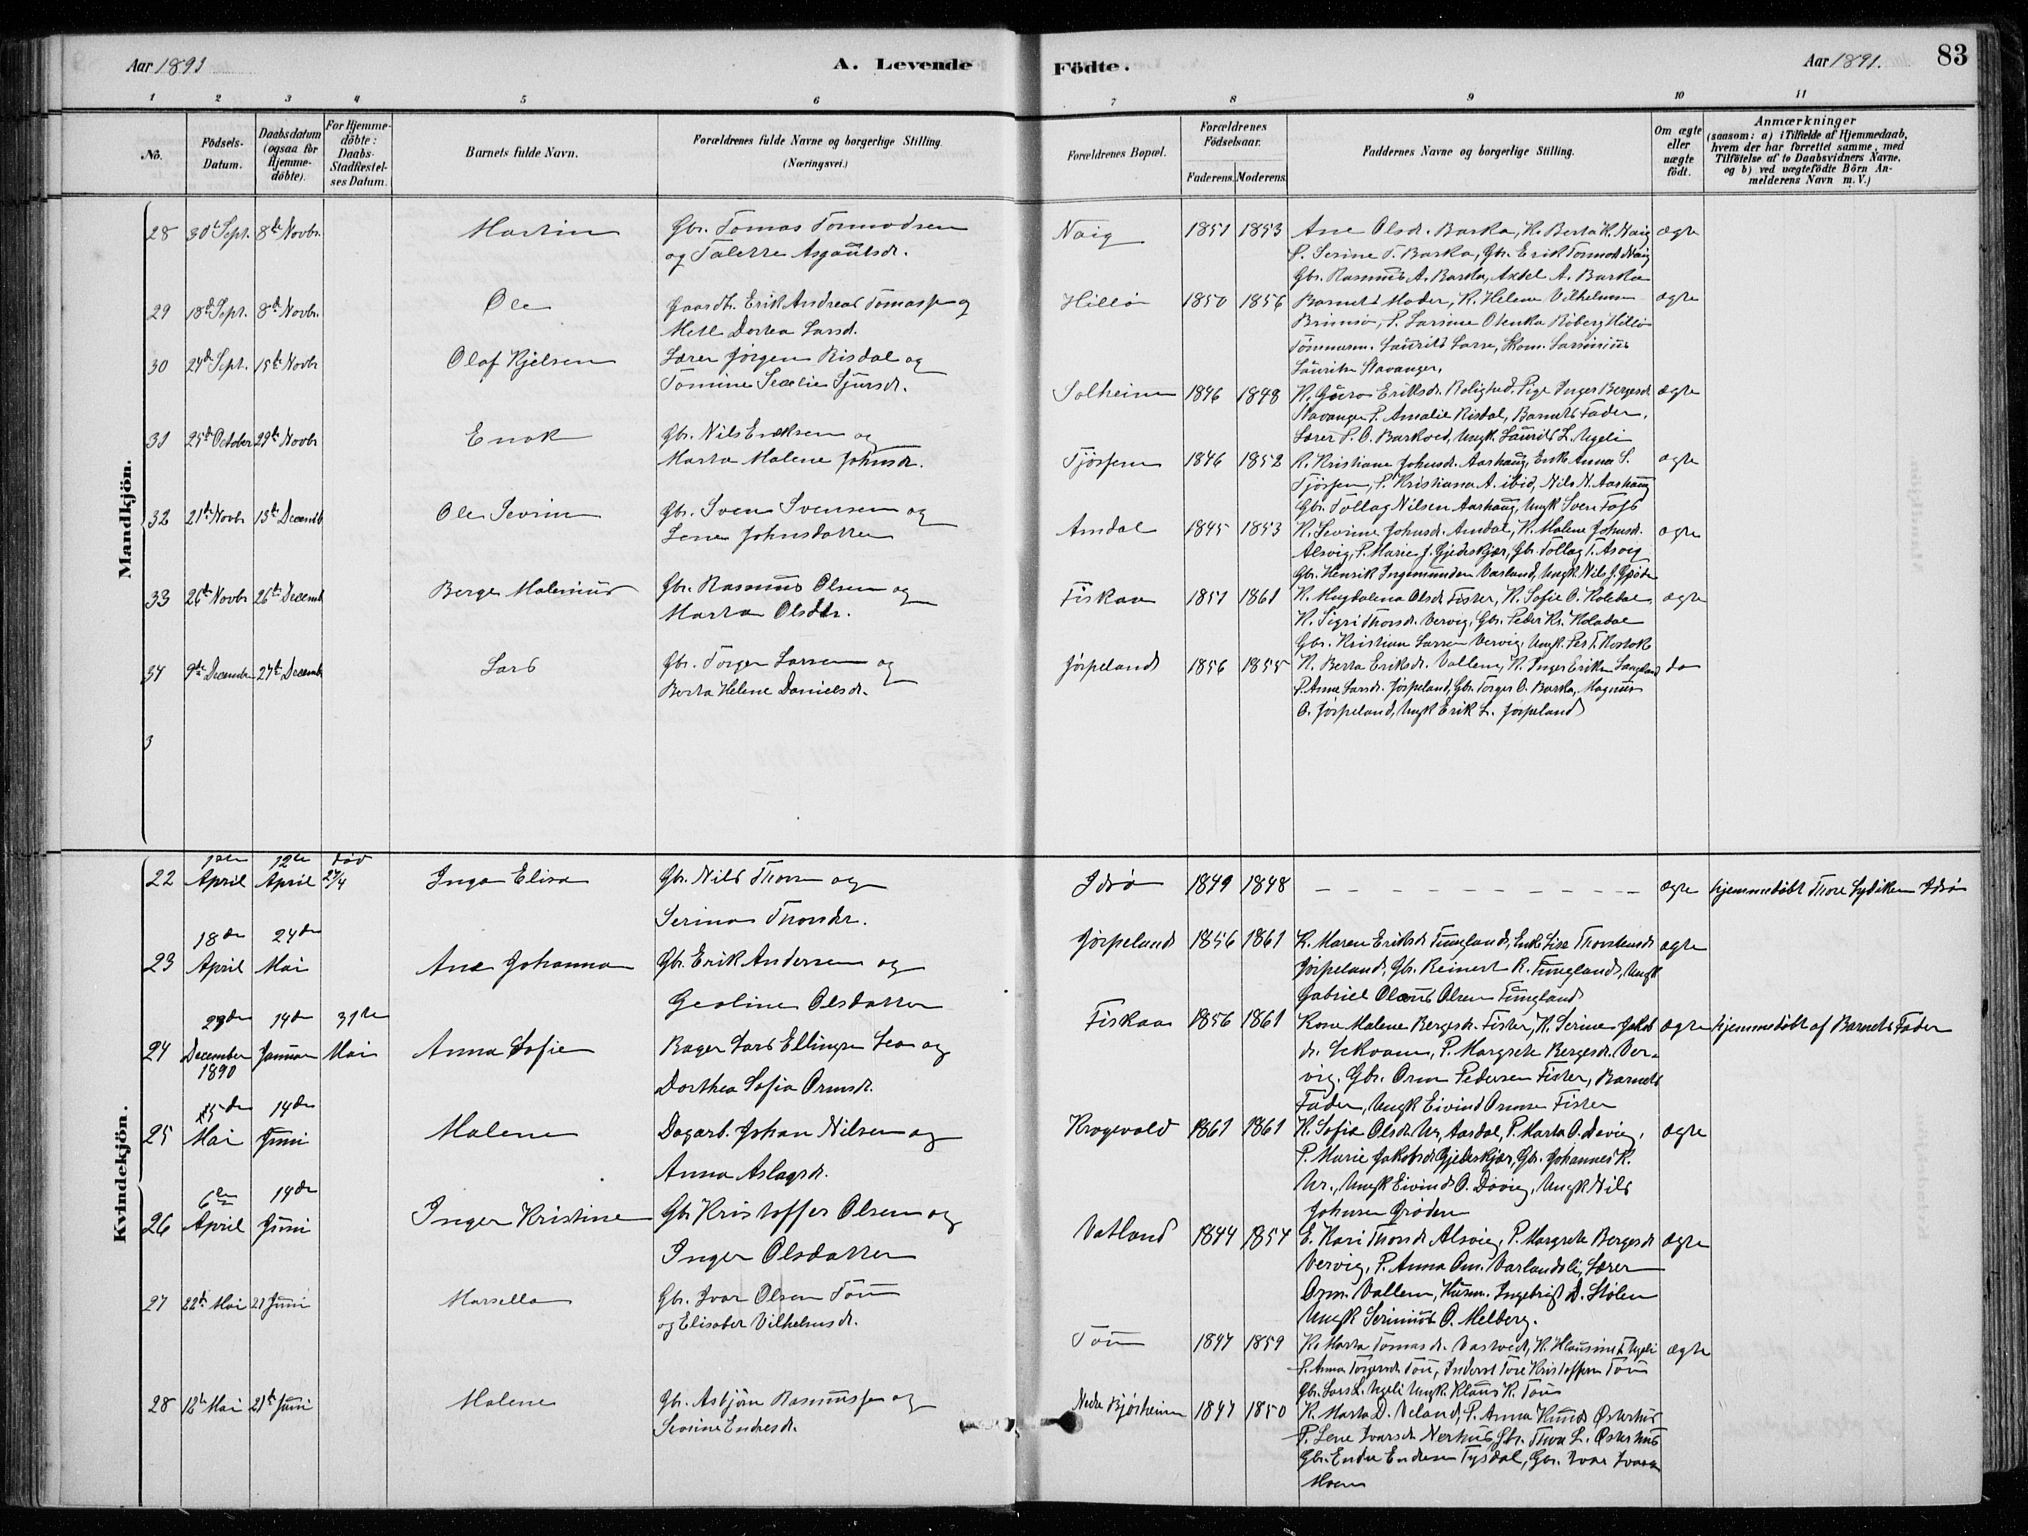 Aar 1891
A. Levende
Födte.
Aar 1891.
83
1 2 3 4 5 6 7 8 9 10 11
No.
Födsels-Datum.
Daabsdatum (ogsaa for Hjemme-döbte).
For Hjemme-döbte: Daabs-Stadfæstel-ses Datum.
Barnets fulde Navn.
Forældrenes fulde Navne og borgerlige Stilling. (Næringsvei.)
Forældrenes Bopæl.
Forældrenes Födselsaar.
Faderens. Moderens.
Faddernes Navne og borgerlige Stilling.
Om ægte eller uægte födt.
Anmærkninger
(saasom: a) i Tilfælde af Hjemmedaab, hvem der har forrettet samme, med Tilföielse af to Daabsvidners Navne, og b) ved uægtefödte Börn Anmelderens Navn m. V.)
Mandkjön.
28 30te Sept. 8de Novbr. Martin Gbr. Tomas Tormodsen
og Talette Asgautsdr.
Naig 1851 1853 Ane Olsdr. Barka, K. Berta K. Naig ægte
P. Serine T. Barka, Gbr. Erik Tormods Naig
Gbr. Rasmus A. Barka, Axel A. Barka
29 18de Sept. 8de Novbr. Ole Gaardbr. Erik Andreas Tomassen og
Mett Dortea Larsd.
Hillø 1850 1856 Barnets Moder, K. Helene Vilhelmsen ægte
Brimsø, P. Larsine Olenka Hillø
Tømmerm. Laurits Larse,
Stavanger.
30 24de Sept. 15de Novbr Olaf Kjelsen Lærer Jörgen Risdal og
Tomine Secelie Sjursdr.
Solheim 1846 1848 K. Guro Eriksdr. Rolighed, Pige Inger Bergesdr ægte
Stavanger, P. Amalie Risdal, Barnets Fader,
Lærer P. O. Barkved, Ungk. Laurits L. Ugeli
31 25de October 29de Novbr Enok Gbr. Nils Eriksen og
Marta Malene Johnsdr.
Tjösem 1846 1852 K. Kristiane Johnsdr. Aarhaug, Enke Anna S. ægte
P. Kristiana A. ibid, Nils N. Aarhaug
Gbr. Tollag Nilsen Aarhaug, Ungk Sven
32 21de Novbr 13de Decemb Ole Severin Gbr. Sven Svensen og
Lene Johnsdatter
Amdal 1845 1853 K. Severine Johnsdr. Amdal, K. Malene Johnsdr. ægte
Alsvig, P. Marie J. Gjederkjær, Gbr. Tollag T. Asvig
Gbr. Henrik Ingemundsen Varland, Ungk. Nils J.
33 26de Novbr 26de Decemb Berge Malenius Gbr. Rasmus Olsen og
Marta Olsdtr.
Fiskaa 1851 1861 K. Magdalena Olsdr. Fister, K. Sofie O. Holedal, ægte
K. Sigri Thorsdr. Vervig, Gbr. Peder Kr. Holadal
Gbr. Kristian Larsen Vervig, Ungk.
34 9de December 27de Decemb Lars Gbr. Torger Larsen og
Berta Helene Danielsdr.
Jörpeland 1856 1855 K. Berta Eriksdr. Vallem, K. Inger Eriksen Langeland do
P. Anne Larsdr. Jörpeland, Gbr. Torger O. Barka, Magnus
O. Jörpeland, Ungk Erik L. Jörpeland
3
Kvindekjön.
22 1ste April 12te April död 27/4 Inga Elisa Gbr. Nils Thorsen og
Serina Thorsdr.
Idsö 1849 1848 — — — — ægte hjemmedöbt Thore Sydiksen Idsö
23 18de April 24de Mai Ane Johanna Gbr. Erik Andersen og
Gealine Olsdatter
Jörpeland 1856 1861 K. Maren Eriksdr Tungland, Enke Lise Thorstensdr ægte
Jörpeland, Gbr. Reinert R. Tungland, Ungk
Gabriel Olaus Olsen Tungland
24 29de December 1890 14de Januar 31te Mai Anna Sofie Bager Lars Ellingsen Lea og
Dorthea Sofia Ormsdr.
Fiskaa 1856 1861 Kone Malene Bergesdr. Fister, K. Serine Jakobs ægte hjemmedöbt af Barnets Fader
dr. Sekvam, P. Margrete Bergesdr. Ver-
vig, Gbr. Orm Pedersen Fister, Barnets
Fader, Ungk Eivind Ormse Fister
25 15de Mai 14de Juni Malene Dagarb. Johan Nilsen og
Anna Aslagsdr.
Krogevold 1861 1861 K. Sofia Olsdr. Ur, Aardal, P. Marta O. Dövig, ægte
P. Marie Jakobsdr Gjederkjær, Gbr. Johannes K.
Ur, Ungk Eivind O. Dövig, Ungk Nils
Johnsen Gröden
26 6te April 14de Juni Inger Kristine Gbr Kristoffer Olsen og
Inger Olsdatter
Vatland 1844 1854 E. Kari Thorsdr Alsvig, P. Margrete Bergesdr ægte
Vervig, P. Anna Om. Varlandsli, Lærer
Orm. Vallem, Husm. Ingebrigt D. Stölen
Ungk Serinius O. Melberg.
27 22de Mai 21 Juni Marsella Gbr. Ivar Olsen Tou
og Elisabet Vilhelmsdr.
Tou 1847 1859 K. Marta Tomasdr. Vastveit, K. Klausine T Ugeli ægte
P. Anna Torgersdr Tou, Inderst Tore Kristoffersen Tou
Gbr. Lars L. Ugeli Ungk. Klaus K. Tou
28 12te Mai 21de Juni Malene Gbr. Asbjörn Rasmussen og
Severine Endresdr.
Nedre Bjørheim 1847 1850 K. Marta D. Veland, P. Anna Knuds Østerhus
P. Lene Ivarsdr Nerhus, Gbr. Thore L. Østerhus
Gbr. Endre Endresen Tysdal, Gbr. Ivar Ivarsen
Moen